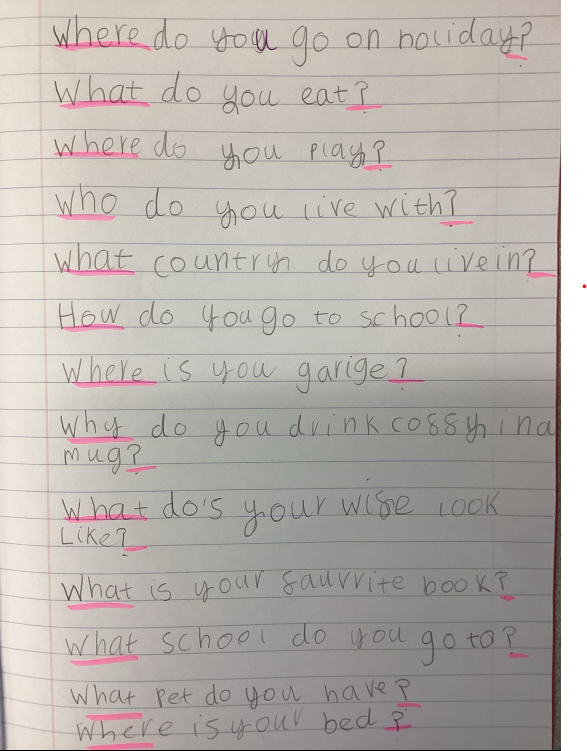 Where do you go on holiday?
What do you eat?
Where do you play?
Who do you live with?
What country do you live in?
How do you go to school?
Where is you garige?
Why do you drink coffy in a
mug?
What do's your wife look
Like?
What is your fauvrite book?
What school do you go to?
What pet do you have?
Where is your bed?